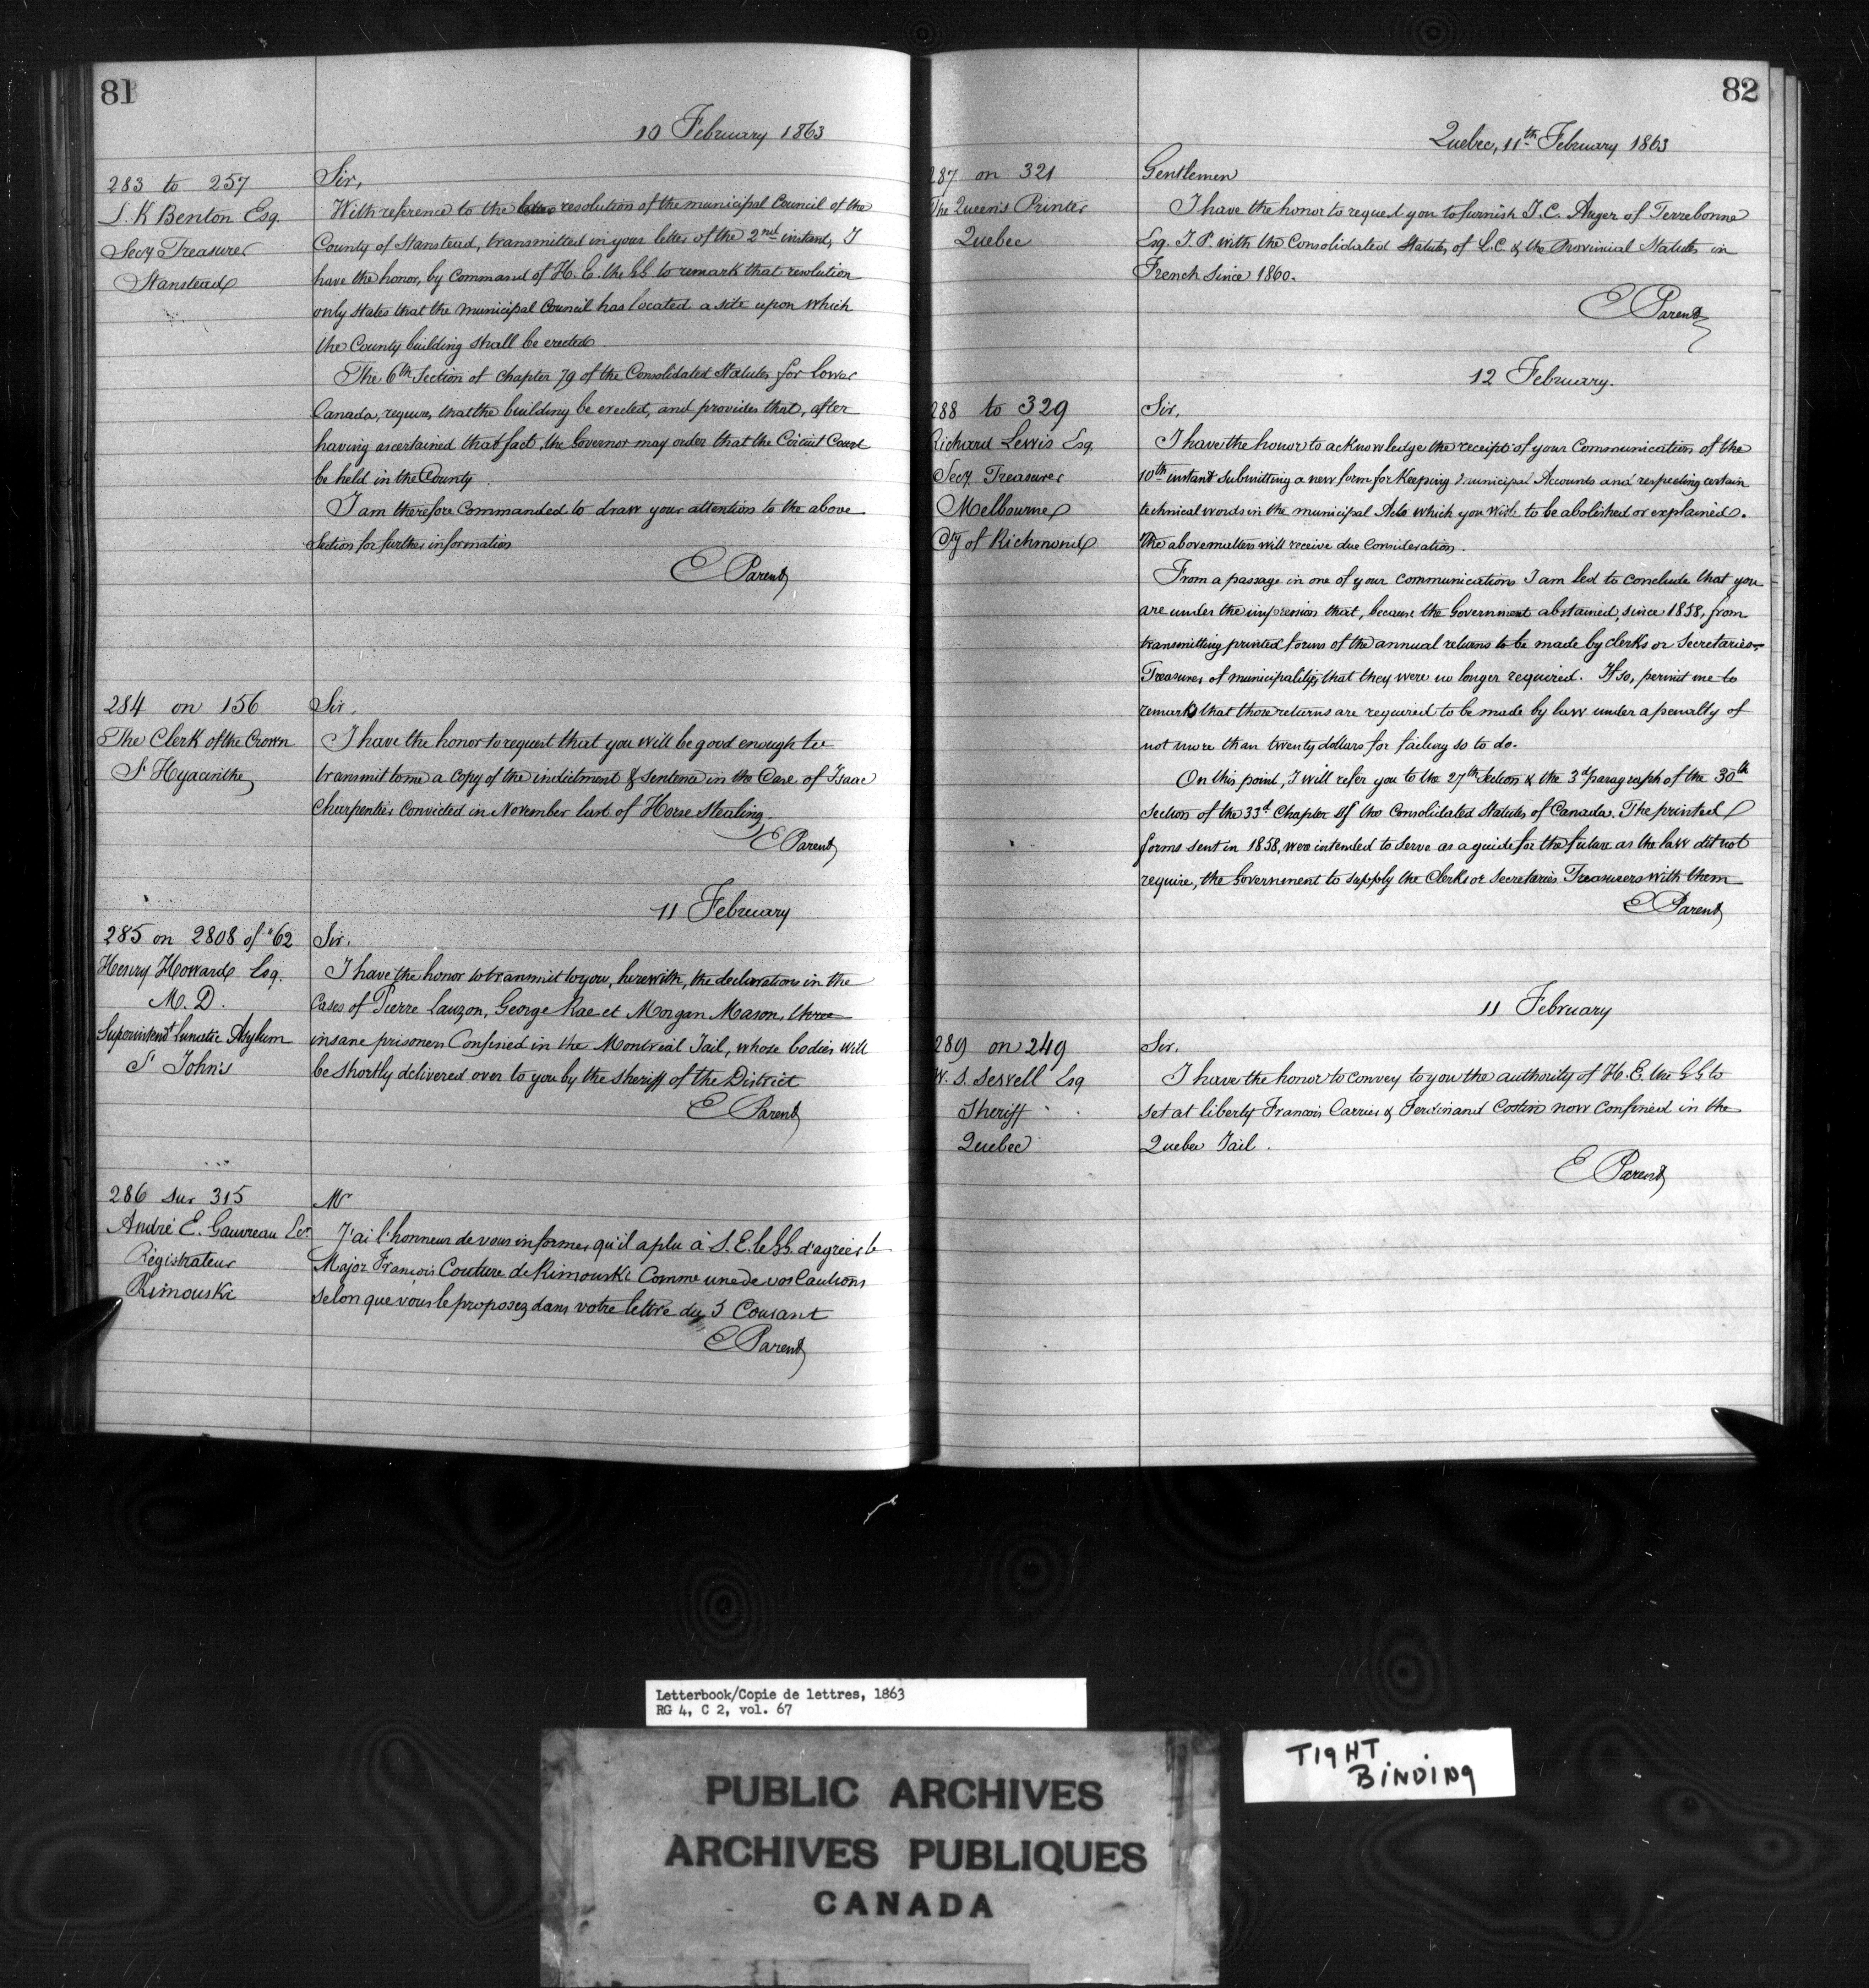 81
10 February 1863
283 to 257
L. K Benton Esq.
Secy Treasurer
Stanstead
Sir,
With reference to the resolution of the municipal Council of the
County of Stanstead, transmitted in your letter of the 2nd instant, I
have the honor, by command of H. E. the GG to remark that resolution
only states that the municipal Council has located a site upon which
the County building shall be erected.
The 6th Section of Chapter 79 of the Consolidated Statutes for Lower
Canada, requires, that the building be erected, and provides that, after
having ascertained that fact, the Governor may order that the Circuit Court
be held in the County.
I am therefore Commanded to draw your attention to the above
Section for further information
E Parent
284 on 156
The Clerk of the Crown
St Hyacinthe
Sir,
I have the honor to request that you will be good enough to
transmit to me a Copy of the indictment & Sentence in the Case of Isaac
Charpentier Convicted in November last of Horse Stealing.
E Parent
11 February
285 on 2808 of "62
Henry Howard Esq.
M. D.
Superintendt Lunatic Asylum
St John's
Sir.
I have the honor to transmit to you, herewith, the declarations in the
Cases of Pierre Lauzon, George Rae et Morgan Mason, three
insane prisoners Confined in the Montreal Jail, whose bodies will
be shortly delivered over to you by the Sheriff of the District
E Parent
286 sur 315
André E. Gauvreau Ecr
Régistrateur
Rimouski
Mr
J'ai l'honneur de vous informer qu'il a plu à S. E. le GG. d'agréer le
Major François Couture de Rimouski Comme une de vos Cautions
selon que vous le proposez dans votre lettre du 5 Courant
E Parent
82
Quebec, 11th February 1863
287 on 321
The Queen's Printer
Quebec
Gentlemen
I have the honor to request you to furnish J. C. Auger of Terrebonne
Esq. J. P. with the Consolidated Statutes of L. C & the Provincial Statutes in
French since 1860.
E Parent
12 February.
288 to 329
Richard Lewis Esq.
Secy. Treasurer
Melbourne
Cty of Richmond
Sir,
I have the honor to acknowledge the receipt of your Communication of the
10th instant submitting a new form for Keeping municipal Accounts and respecting certain
technical words in the municipal Acts which you wish to be abolished or explained.
The above matters will receive due Consideration.
From a passage in one of your communications I am led to conclude that you
are under the impression that, because the Government abstained, since 1858, from
transmitting printed forms of the annual returns to be made by clerks or Secretaries-
Treasurers of municipalities, that they were no longer required. If so, permit me to
remark that those returns are required to be made by law under a penalty of
not more than twenty dollars for failing so to do.
On this point, I will refer you to the 27th Section & the 3d paragraph of the 30th
Section of the 33d Chapter of the Consolidated Statutes of Canada. The printed
forms sent in 1858, were intended to serve as a guide for the future as the law did not
require, the Government to supply the Clerks or Secretaries Treasurers with them
E Parent
11 February
289 on 249
W. S. Sewell Esq
Sheriff
Quebec
Sir,
I have the honor to convey to you the authority of H. E. the GG to
set at liberty Francois Carrier & Ferdinand Costin now Confined in the
Quebec Jail.
E Parent
Letterbook/Copie de lettres, 1863
RG 4, C 2, vol. 67
TIGHT
BINDING
PUBLIC ARCHIVES
ARCHIVES PUBLIQUES
CANADA